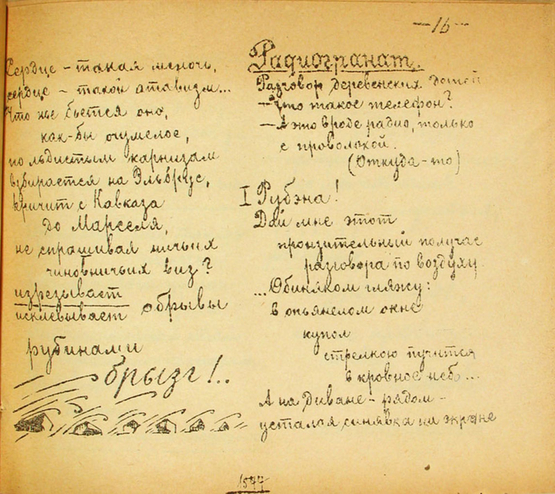 — 16 —
Сердце – такая мелочь,
сердце – такой атавизм...
Что же бьется оно,
как-бы очумелое,
по льдистым карнизам
взбирается на Эльбрус,
кричит с Кавказа
до Марселя,
не спрашивая ничьих
чиновничьих виз?
изрезывает
исклевывает обрывы
рубинами
брызг!..
Радиогранат.
Разговор деревенских детей
– Что такое телефон?
– А это вроде радио, только
с проволокой.
(Откуда-то)
I Рубэна!
Дай мне этот
пронзительный получас
разговора по воздуху
...Обиняком гляжу:
в опьянелом окне
купол
стрелкою пучится
в кровное небо...
А на диване – рядом –
усталая синявка на экране